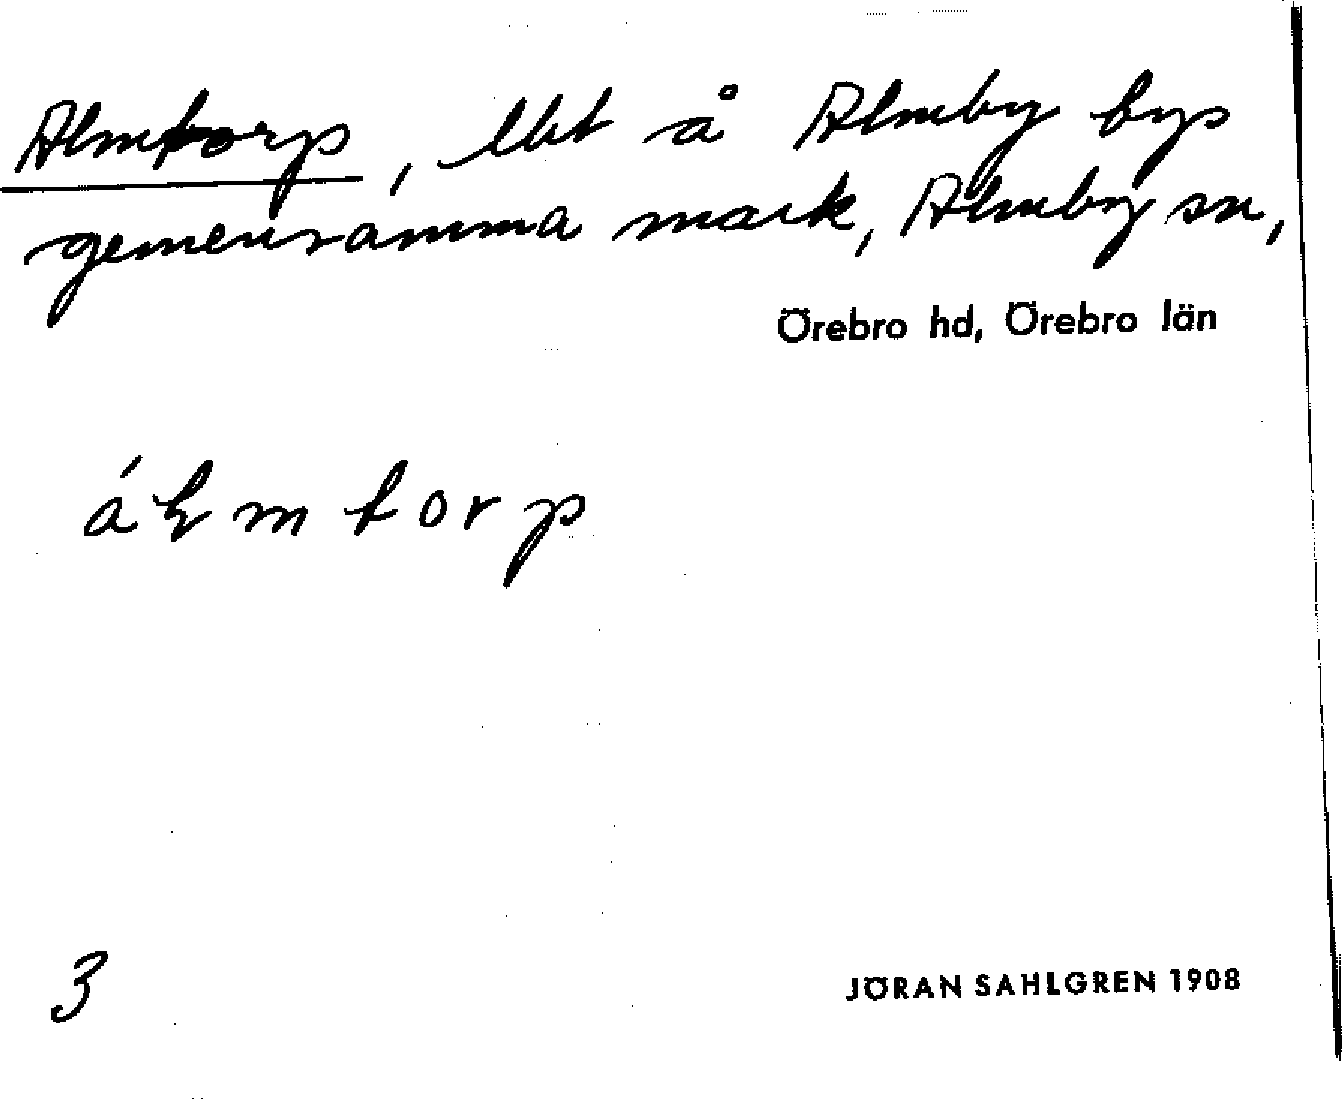 Almtorp, lht å Almby bys
gemensamma mark, Almby sn,
Örebro hd, Örebro län
álmtorp
3
JÖRAN SAHLGREN 1908